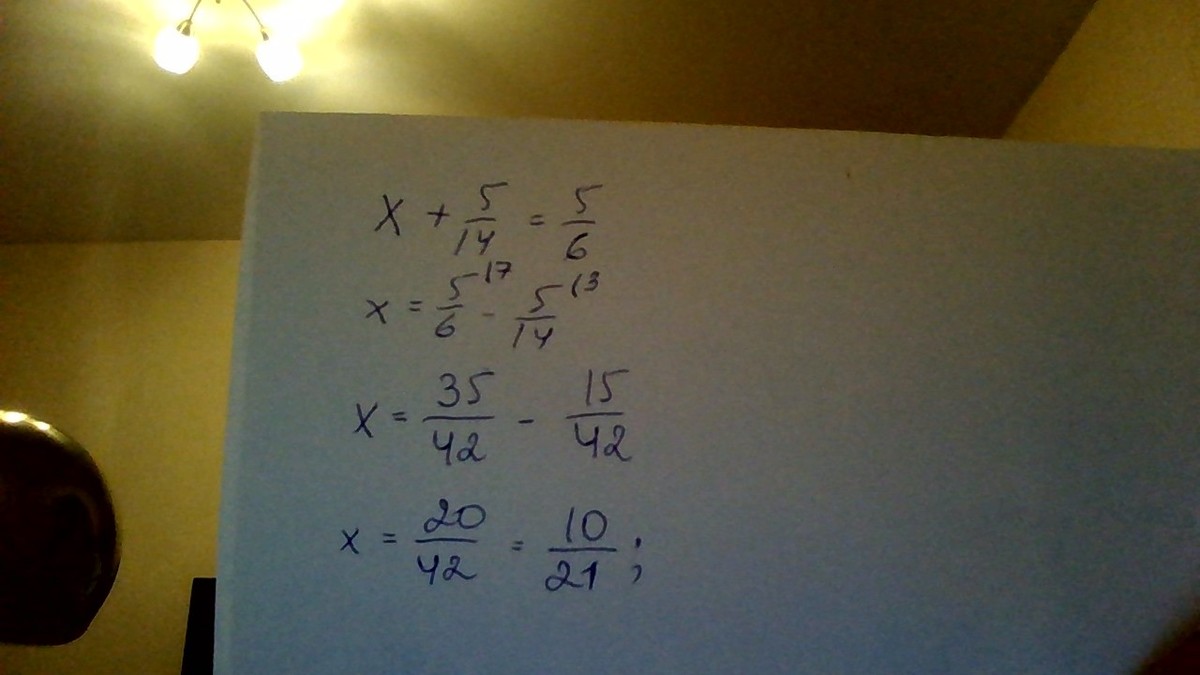 x + 5/14 = 5/6
x = 5/6 (7 - 5/14 (3
x = 35/42 - 15/42
x = 20/42 = 10/21 ;